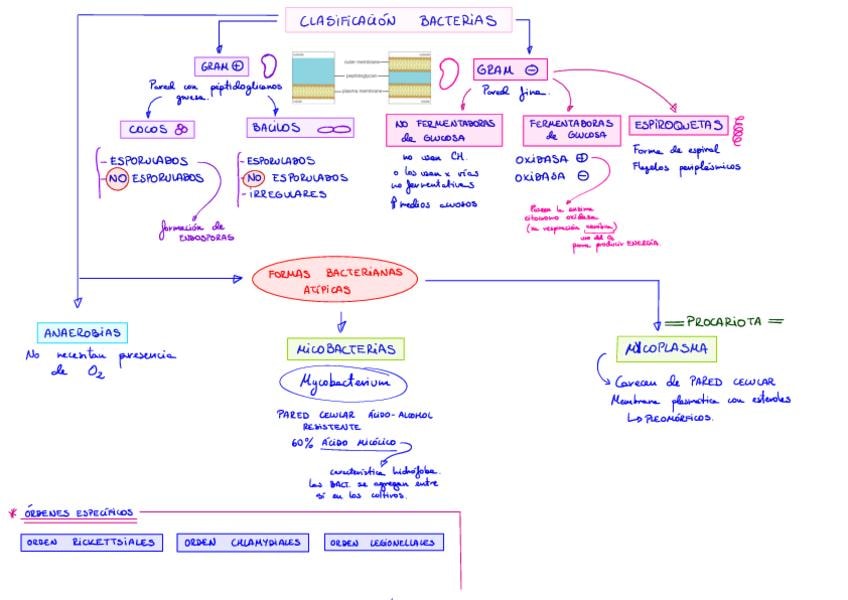 CLASIFICACIÓN BACTERIAS
GRAM +
Pared con peptidoglicanos
gruesa.
outer membrane
peptidoglycan
plasma membrane
GRAM -
Pared fina.
COCOS
- ESPORULADOS
- NO ESPORULADOS
formación de
ENDOSPORAS
BACILOS
- ESPORULADOS
- NO ESPORULADOS
- IRREGULARES
NO FERMENTADORAS
de GLUCOSA
no usan CH.
o los usan x vías
no fermentativas
↑ medios acuosos
FERMENTADORAS
de GLUCOSA
OXIDASA +
OXIDASA -
Poseen la enzima
citocromo oxidasa
(la respiración aerobia)
uso del O2
para producir ENERGÍA.
ESPIROQUETAS
Forma de espiral
Flagelos periplásmicos
FORMAS BACTERIANAS
ATÍPICAS
ANAEROBIAS
No necesitan presencia
de O2
MICOBACTERIAS
Mycobacterium
PARED CELULAR ÁCIDO-ALCOHOL
RESISTENTE
60% ÁCIDO MICÓLICO
característica hidrófoba.
Las BACT. se agregan entre
sí en los cultivos.
== PROCARIOTA ==
MYCOPLASMA
Carecen de PARED CELULAR
Membrana plasmática con esteroles
↳ PLEOMÓRFICOS.
* ÓRDENES ESPECÍFICOS
ORDEN RICKETTSIALES
ORDEN CHLAMYDIALES
ORDEN LEGIONELLALES